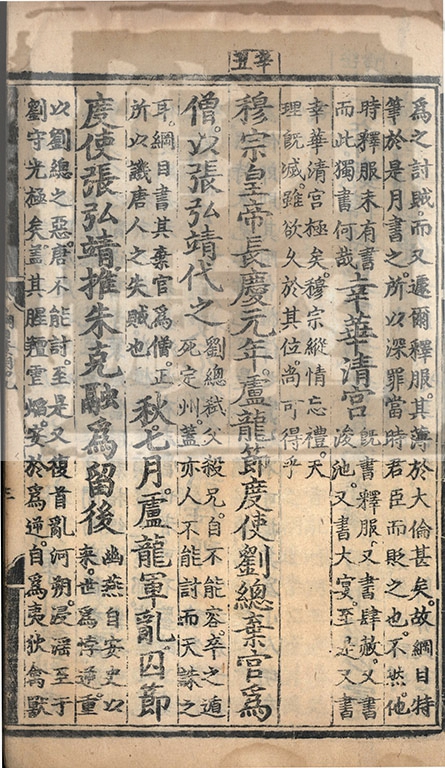 辛丑
為之討賊而又遽爾釋服其薄於大倫甚矣故綱目特
筆於是月書之所以深罪當時君臣而貶之也不然他
時釋服未有書
而此獨書何哉
幸華清宮
既書釋服又書肆赦又書
浚池又書大宴至是又書
幸華清宮極矣穆宗縱情忘禮天
理既滅雖欲久於其位尚可得乎
穆宗皇帝長慶元年盧龍節度使劉總棄官為
僧以張弘靖代之
劉總弑父殺兄自不能容卒之遁
死定州蓋亦人不能討而天誅之
耳綱目書其棄官為僧正
所以譏唐人之失賊也
秋七月盧龍軍亂囚節
度使張弘靖推朱克融為留後
幽燕自安史以
來世為悖逆重
以劉總之惡唐不能討至是又復首亂河朔浸淫至于
劉守光極矣蓋其腥羶雲熖安於為逆自為夷狄禽獸